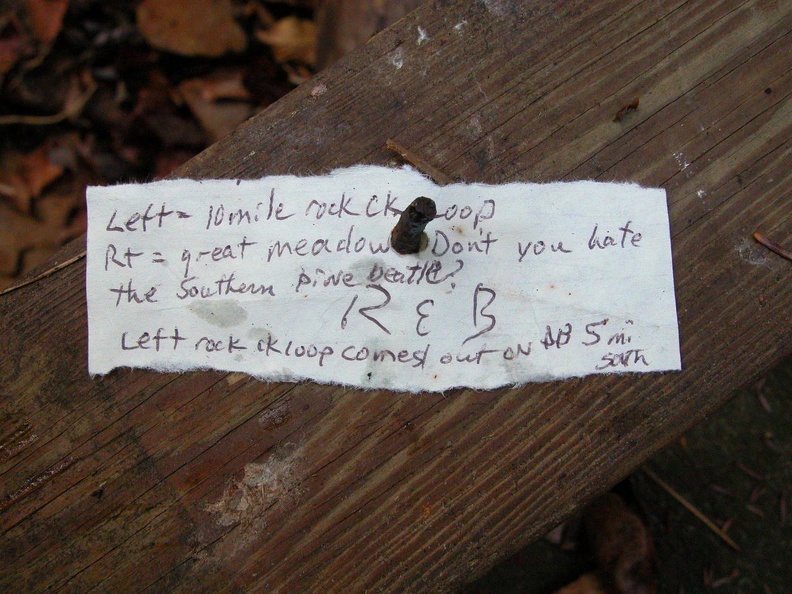 Left = 10 mile rock ck Loop
Rt = great meadow Don't you hate
the Southern pine beatle?
R & B
Left rock ck loop comes out on BB 5 mi
south